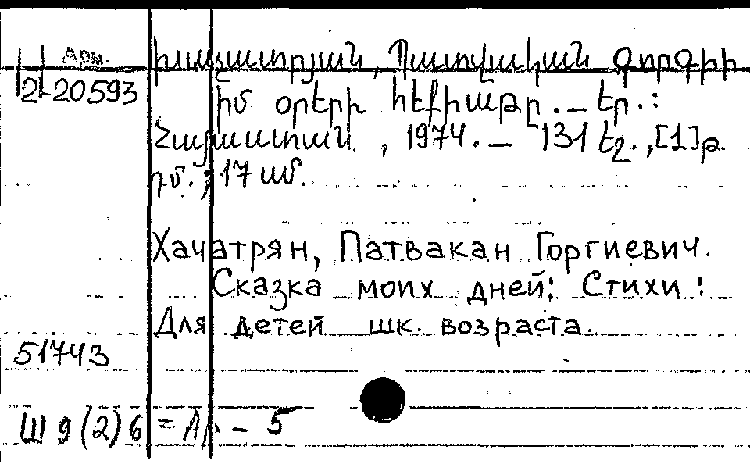 Арм. Խաչատրյան, Պատվական Գորգիի
2-20593 իմ օրերի հեքիաթը. – Եր.:
Հայաստան, 1974. – 131 էջ., [1] թ.
դմ.; 17 սմ.
Хачатрян, Патвакан Горгиевич.
Сказка моих дней: Стихи:
Для детей шк. возраста.
51743
Ш 9(2)6 = Ар. – 5